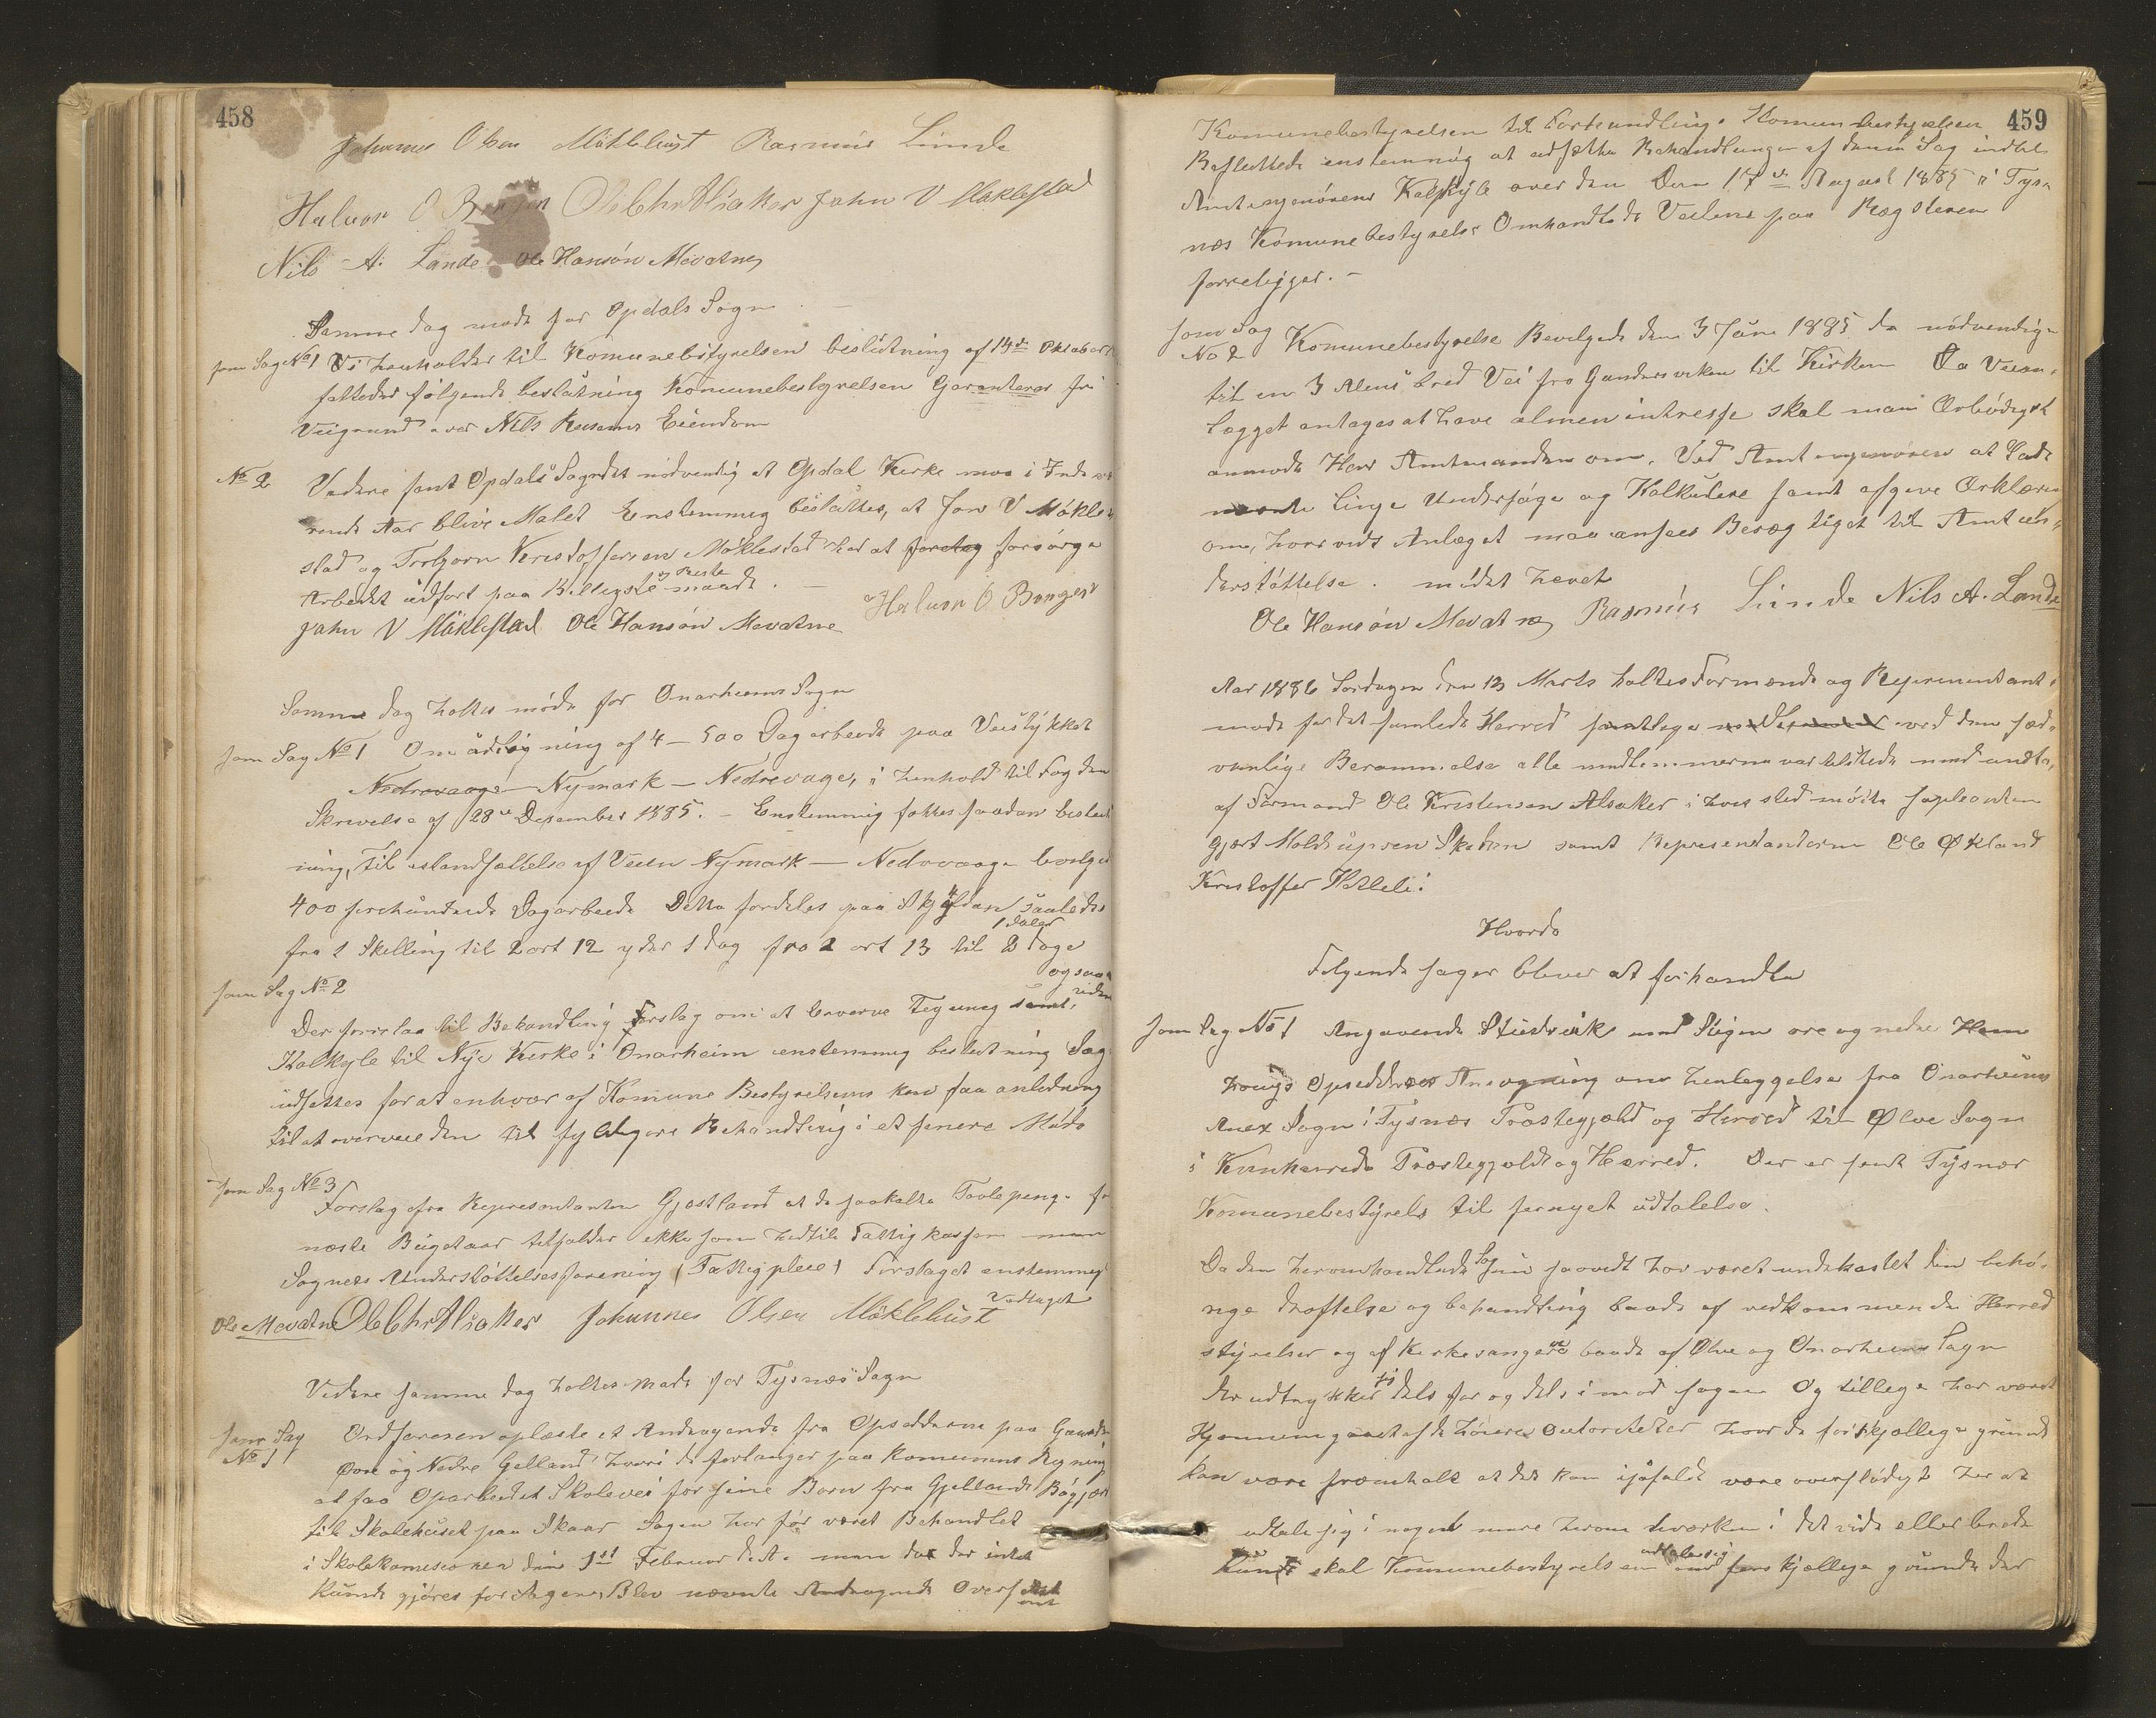 458
Johannes Olsen Möklebust Rasmus Linde
Halvor O Ole Chr Alsaker John V Møklestad
Nils A. Lande Ole Hansøn Mevatne
Samme dag møde for Opdals Sogn
som Sag No 1 Vi henholder til Komunebestyrelsen beslutning af 14de Oktober
fattedes følgende beslutning Komunebestyrelsen Garanterer fri
Veigrund over Nils Eiendom
No 2 Videre fant Opdals Sogn det nødvendig at Opdal Kirke maa i Inde
rende Aar blive Malet Enstemmig besluttes, at Jon V Møkle
stad og Torbjorn Kristoffersen Møklestad har at foretag forsörge
Arbeidet udført paa Billigste og Beste maade.
John V Möklestad Ole Hansön Mevatne Halvor O
Samme dag holtes møde for Onarheims Sogn
som Sag No 1 Om udligning af 4-500 Dagarbeide paa Veistykket
Nedrevaage Nymark - Nedrevage, i henhold til Fogden
Skrivelse af 28de Desember 1885. - Enstemmig fattes saadan beslut
ning, Til istandsættelse af Veien Nymark - Nedrevaage bevilges
400 firehundrede Dagarbeide Dette fordeles paa Skylden saaledes
fra 1 Skilling til 2 ort 12 yder 1 dag fra 2 ort 13 til 1 daler 2 dage
og saa videre
som Sag No 2
Der forelaa til Behandling Forslag om at erverve Tegning samt
Kalkyle til Nye Kirke i Onarheim enstemmig beslutning Sag
udsettes for at enhver af Komune Bestyrelsens kan faa anledning
til at overveie den til fyldigere Behandling i et senere Møde
som Sag No 3
Forslag fra Representanten Gjøstland at de saakalte
næste Bugetaar tilfalder ikke som hidtil Fattigkassen men
Sognets Understøttelsesforening (Fattigpleie) Forslaget enstemmig
Vedtaget
Ole Mevatne Ole Chr Alsaker Johannes Olsen Möklebust
Videre samme dag holtes møde for Tysnæs Sogn
som Sag
No 1
Ordføreren oplæste et Andragende fra Opsidderne paa
Øvre og Nedre Gjelland hvori de forlanger paa Komunens Regning
at faa Oparbeidet Skolevei for sine Børn fra Gjellands
til Skolehuset paa Skaar Sagen har før været Behandlet
i Skolekomisionen den 1st Februar d. A. men da der intet
kunde gjøres for Sagen, Blev nævnte Andragende
459
Komunebestyrelsen til Forhandling. Komunebestyrelsen
Besluttede enstemmig at udsætte Behandlingen af denne Sag indtil
Amtingeniørens Kalkyle over den Den 17de August 1885 i Tys-
næs Komunebestyrelse Omhandlede Veilene paa Regsteren
foreligger. -
som Sag
No 2
Komunebestyrelse Bevilgede den 3 Juni 1885 de nødvendige
til en 3 Alens bred Vei fra Gundersviken til Kirken Da Veian-
lægget antages at have almen intresse skal man Ærbødigst
anmode Herr Amtmanden om, Ved Amtingeniøren at lade
linje Undersøge og Kalkulere samt afgive Erklæring
om, hvorvidt Anlæget maa ansees Beregtiget til Amtsun-
derstøttelse. mödet hævet
Ole Hansön Mevatne Rasmus Linde Nils A. Lande
Aar 1886 Lördagen den 13 Marts holtes Formends og Representant-
møde for det samlede Herred ved den sæd-
vanlige Berammelse alle medlemmerne var tilstede med undta-
af Formand Ole Kristensen Alsaker i hvis sted mötte supleanten
samt Representanterne Ole Økland
Kristoffer
Hvorda
Folgende sager blever at forhandle
som Sag No 1 Angaaende med øvre og nedre
Opsiddernes Ansøgning om henleggelse fra Onarheims
Anex Sogn i Tysnæs Prestegjæld og Herred til Ølve Sogn
i Kvinherreds Prestegjeld og Herred. Der er sendt Tysnæs
Komunebestyrels til fornyet udtalelse.
Da den heromhandlede Sag nu saavidt har været underkastet den behø-
rige drøftelse og behandling baade af vedkommende Herred
styrelser og af baade af Ølve og Onarheims Sogn
der udtrykker sig dels for og dels imod sagen Og tillige har været
Gjennemgaaet af de høiere Autoriteter hvor de forskjællige grunde
kan være fremholt at det kan isåfald være overflödigt her at
udtale sig i noget mere herom hverken i det vide eller brede
Kun skal Komunebestyrelsen udtale sig forskjellige grunde der